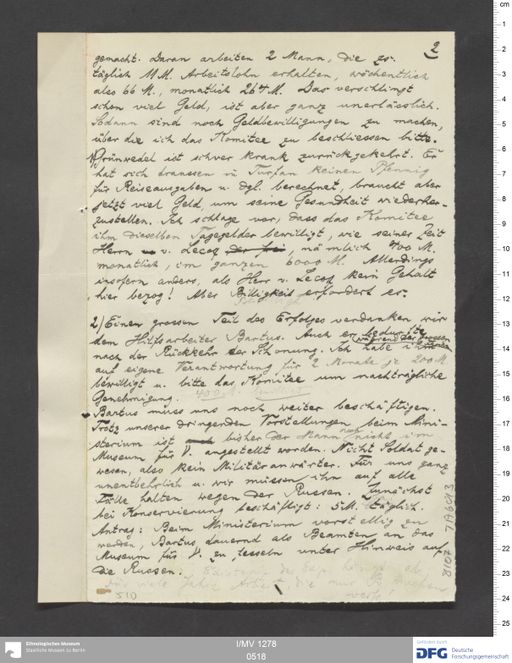 2
gemacht. Daran arbeiten 2 Mann, die zs.
täglich 11 M. Arbeitslohn erhalten, wöchentlich
also 66 M., monatlich 264 M. Das verschlingt
schon viel Geld, ist aber ganz unerlässlich.
Sodann sind noch Geldbewilligungen zu machen,
über die ich das Komitee zu beschliessen bitte.
1) Grünwedel ist schwer krank zurückgekehrt. Er
hat sich draussen in Turfan keinen Pfennig
für Reiseausgaben u. dgl. berechnet, braucht aber
jetzt viel Geld, um seine Gesundheit wiederher-
zustellen. Ich schlage vor, dass das Komitee
ihm dieselben Tagegelder bewilligt, wie seiner Zeit
Herrn v. Lecoq, nämlich 400 M.
monatlich, im ganzen 6000 M. Allerdings
insofern anders, als Herr v. Lecoq kein Gehalt
hier bezog! Aber Billigkeit erfordert es.
2) Einen grossen Teil des Erfolges verdanken wir
dem Hilfsarbeiter Bartus. Auch er bedurfte
nach der Rückkehr der Schonung. Ich habe ihm
während der grossen
auf eigene Verantwortung für 2 Monate je 200 M.
bewilligt u. bitte das Komitee um nachträgliche
Genehmigung. 400 M.
Bartus muss uns noch weiter beschäftigen.
Trotz unserer dringenden Vorstellungen beim Mini-
sterium ist bisher der Mann noch nicht im
Museum für V. angestellt worden. Nicht Soldat ge-
wesen, also kein Militäranwärter. Für uns ganz
unentbehrlich u. wir müssen ihn auf alle
Fälle halten wegen der Russen. Zunächst
bei Konservierung beschäftigt: 5 M. täglich.
Antrag: Beim Ministerium vorstellig zu
werden, Bartus dauernd als Beamten an das
Museum für V. zu fesseln unter Hinweis auf
die Russen.
510
Ethnologisches Museum
Staatliche Museen zu Berlin
I/MV 1278
0518
Gefördert durch
DFG
Deutsche
Forschungsgemeinschaft
cm
1
2
3
4
5
6
7
8
9
10
11
12
13
14
15
16
17
18
19
20
21
22
23
24
25